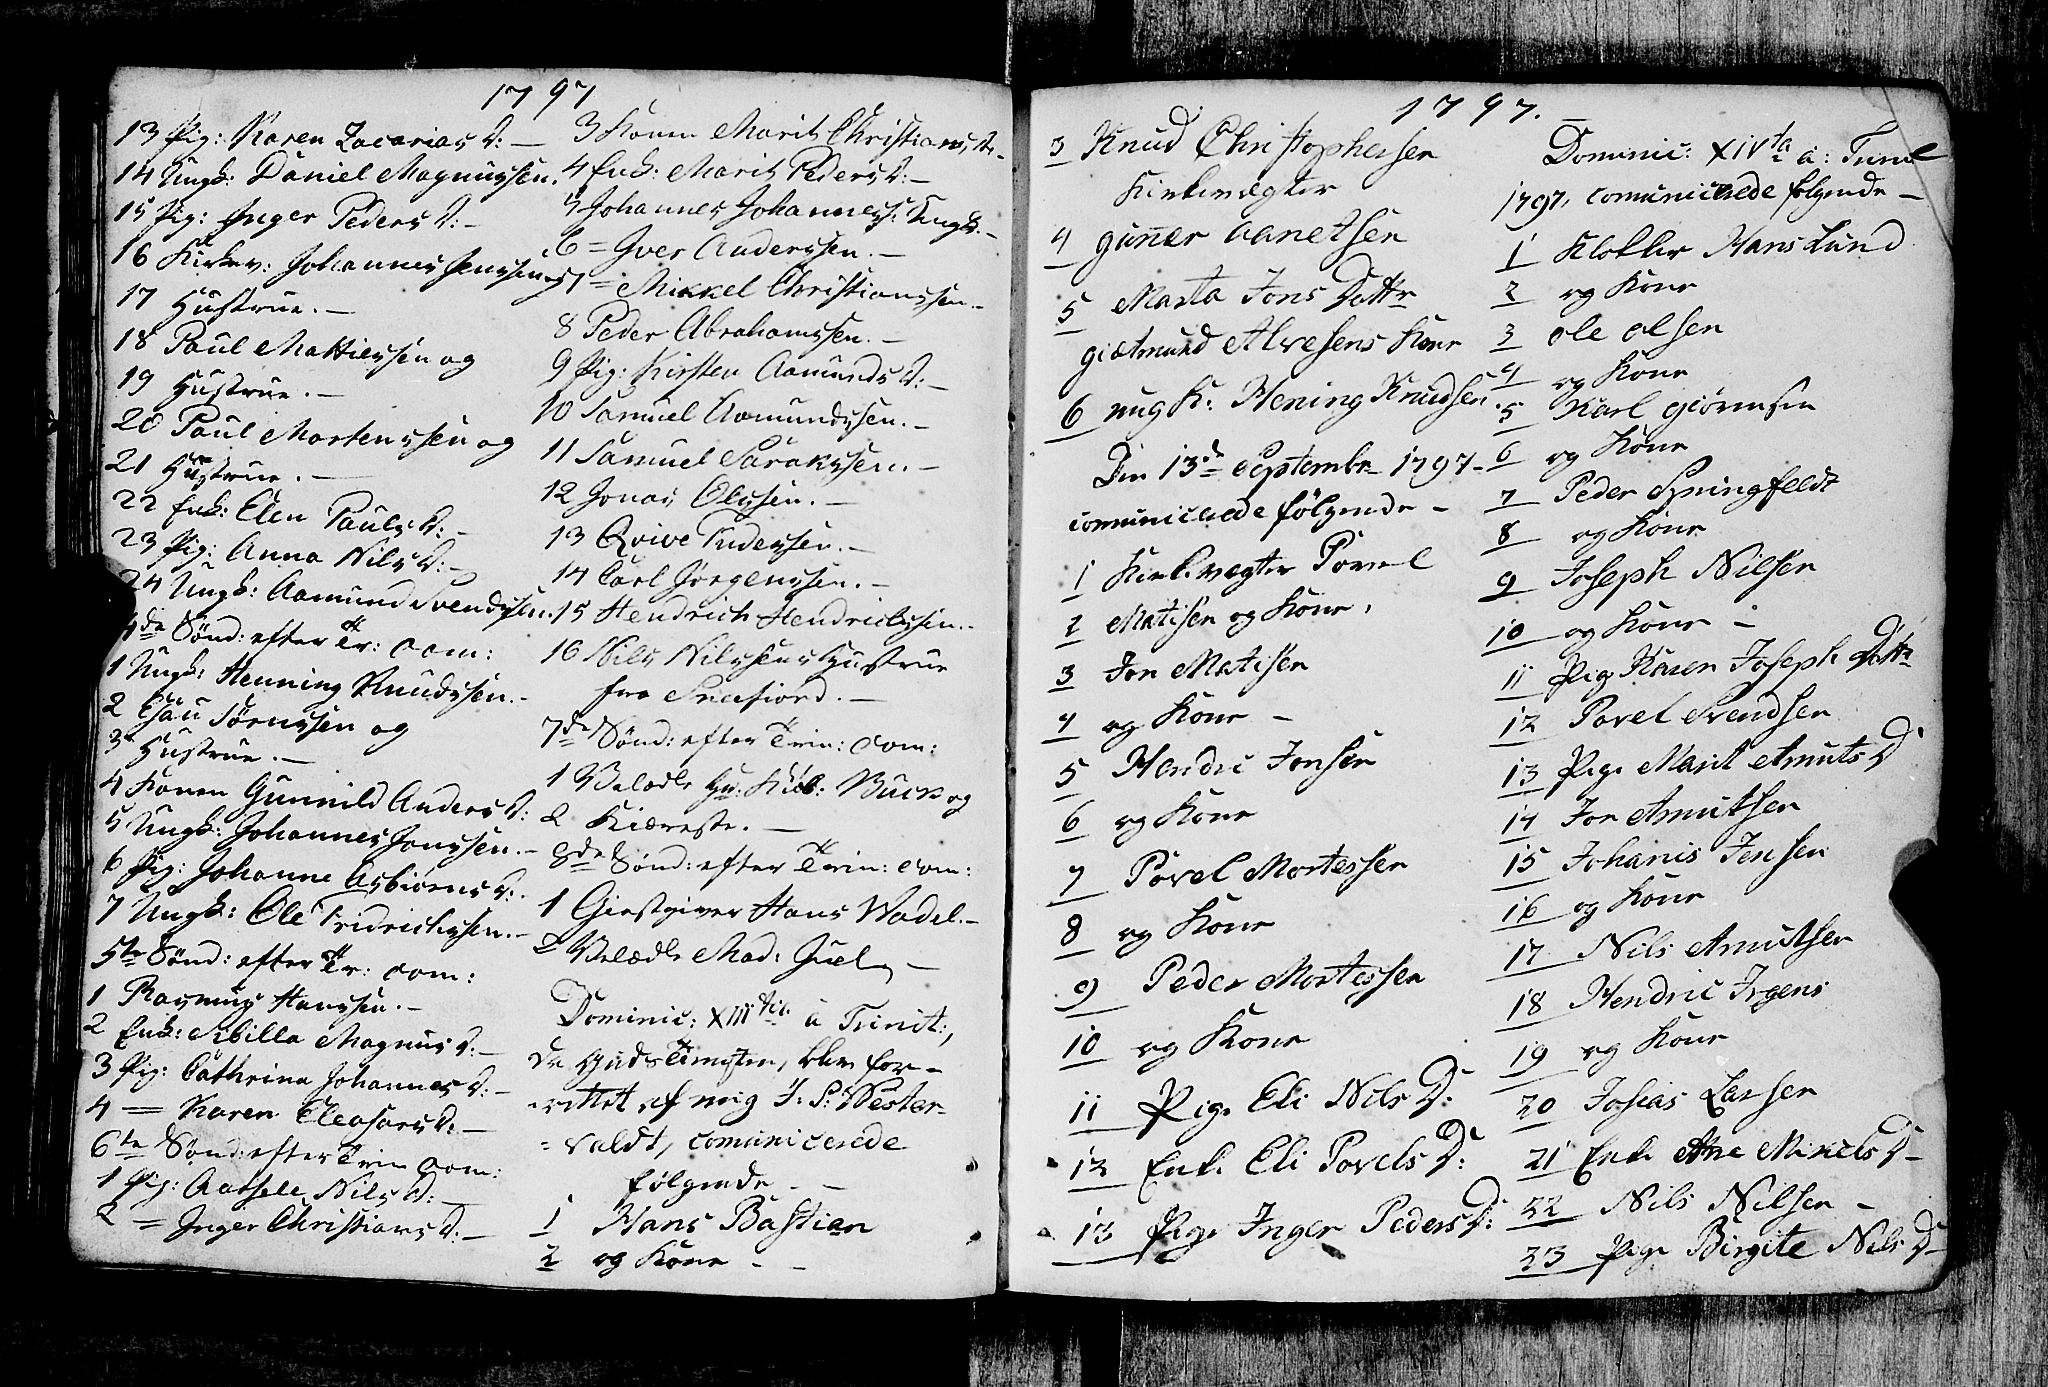 1797
13 Pig: Karen Zacarias D: —
14 Ungk: Daniel Magnussen.
15 Pig: Inger Peders D: —
16 Kirkev: Johannes Jenssen og
17 Hustrue. —
18 Paul Mattiessen og
19 Hustrue. —
20 Paul Mortenssen og
21 Hustrue. —
22 Enk: Elen Pauls D: —
23 Pig: Anna Nils D: —
24 Ungk: Aamund Svendssen.
4de Sønd: efter Tr: Com:
1 Ungk: Henning Knudssen. —
2 Esau Sørenssen og
3 Hustrue. —
4 Konen Gunnild Anders D:
5 Ungk: Johannes Jonssen. —
6 Pig: Johanne Asbiørns D:
7 Ungk: Ole Fridrichssen. —
5te Sønd: efter Tr: Com:
1 Rasmus Hanssen. —
2 Enk: Sibilla Magnus D: —
3 Pig: Cathrina Johannes D: —
4 — Karen Eleasars D: —
6te Sønd: efter Trin Com:
1 Pig: Aatsele Nils D: —
2 — Inger Christians D: —
3 Konen Marit Christians D. —
4 Enk: Marit Peders D: —
5 Johannes Johanness: Ungk. —
6 = Iver Anderssen. —
7 = Mikkel Christianssen. —
8 Peder Abrahamssen. —
9 Pig: Kirsten Aamunds D: —
10 Samuel Aamundssen. —
11 Samuel Sarakssen. —
12 Jonas Olssen. —
13 Qvive Pederssen. —
14 Carl Jørgenssen. —
15 Hendrich Hendrichssen. —
16 Nils Nilssens Hustrue
fra Snefiord. —
7de Sønd: efter Trin: Com:
1 Velædle Hr: Kiøb: Buck og
2 Kiæreste. —
8de Sønd: efter Trin: Com:
1 Giestgiver Hans Wadel. —
2 Velædle Mad: Juel, —
Dominic: XIIItia a Trinit:,
da Gudstienesten, blev for-
-rettet af mig J: P: Wester-
=valdt, comunicerede
følgende — —
1 Hans Bastian
2 og Kone — —
1797.
3 Knud Christophersen
Kirkevægter
4 Guner Aanetsen
5 Marta Jons Dattr
Giætmund Alvesens Kone
6 ung K: Hening Knudsen.
Den 13de Septembr 1797 —
comunicerede følgende —
1 Kirkevægter Povel
2 Matisen og Kone,
3 Jon Matisen
4 og Kone —
5 Hendric Jonsen
6 og Kone
7 Povel Mortessen
8 og Kone
9 Peder Mortessen
10 og Kone
11 Pige Eli Nils D:
12 Enke Eli Povels D:
13 Pige Inger Peders D:
Dominic: XIVta a: Trinit
1797, comunicerede følgende —
1 Klokker Hans Lund
2 og Kone
3 Ole Olsen
4 og Kone
5 Karl Giørensen
6 og Kone
7 Peder Springfeldt
8 og Kone
9 Joseph Nilsen
10 og Kone —
11 Pig Karen Joseph Dattr
12 Povel Svendsen
13 Pige Marit Amuts D
14 Jon Amutsen
15 Johanis Jensen
16 og Kone
17 Nils Amutsen
18 Hendric Irgens
19 og Kone
20 Josias Larsen
21 Enke Ane Mikels D —
22 Nils Nilsen —
23 Pige Birgite Nils D —